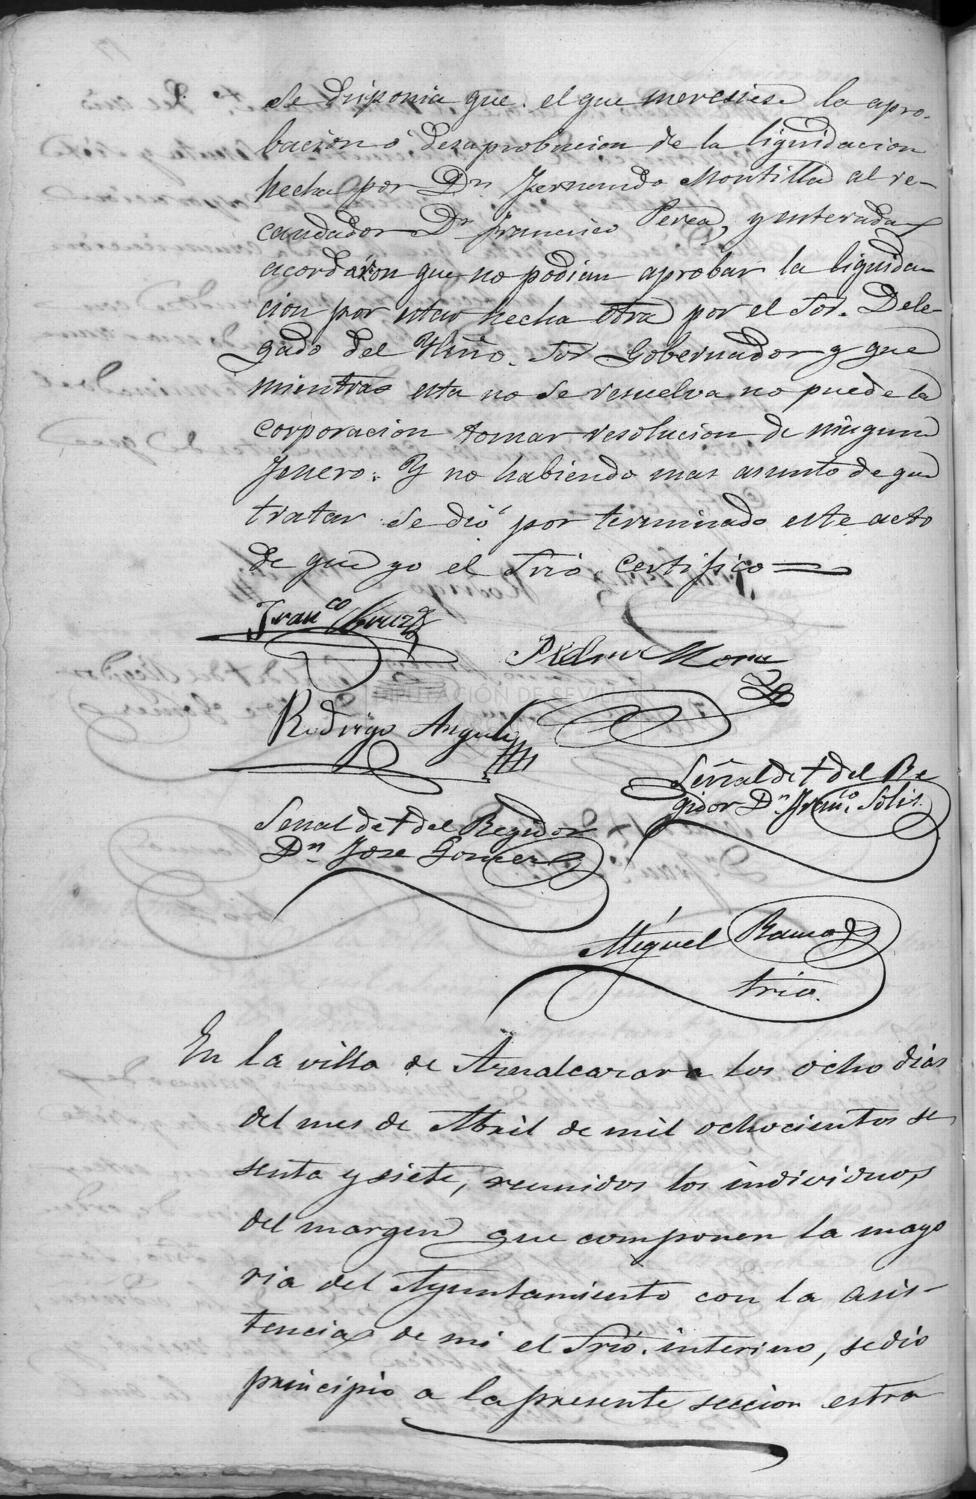 se disponia que el que mereciese la apro-
bacion o desaprobacion de la liquidacion
hecha por Dn Fernando Montilla al re-
caudador Dn Francisco Perea, y enterados
acordaron que no podian aprobar la liquida-
cion por estar hecha otra por el Sor. Dele-
gado del Sor Gobernador y que
mientras esta no se resuelva no puede la
corporacion tomar resolucion de ningun
Jenero. Y no habiendo mas asunto de que
tratar se dió por terminado este acto
de que yo el Srio certifico
Franco
Pedro Mora
DIPUTACIÓN DE SEVILLA
Rodrigo Angulo
Señal de + del Re
gidor Dn Franco Solis
Señal de + del Regidor
Dn Jose Gomez
Miguel Ramos
Srio.
En la villa de Aznalcazar a los ocho dias
del mes de Abril de mil ochocientos se
senta y siete, reunidos los individuos
del margen que componen la mayo
ria del Ayuntamiento con la asis-
tencia de mi el Srio. interino, se dio
principio a la presente seccion estra